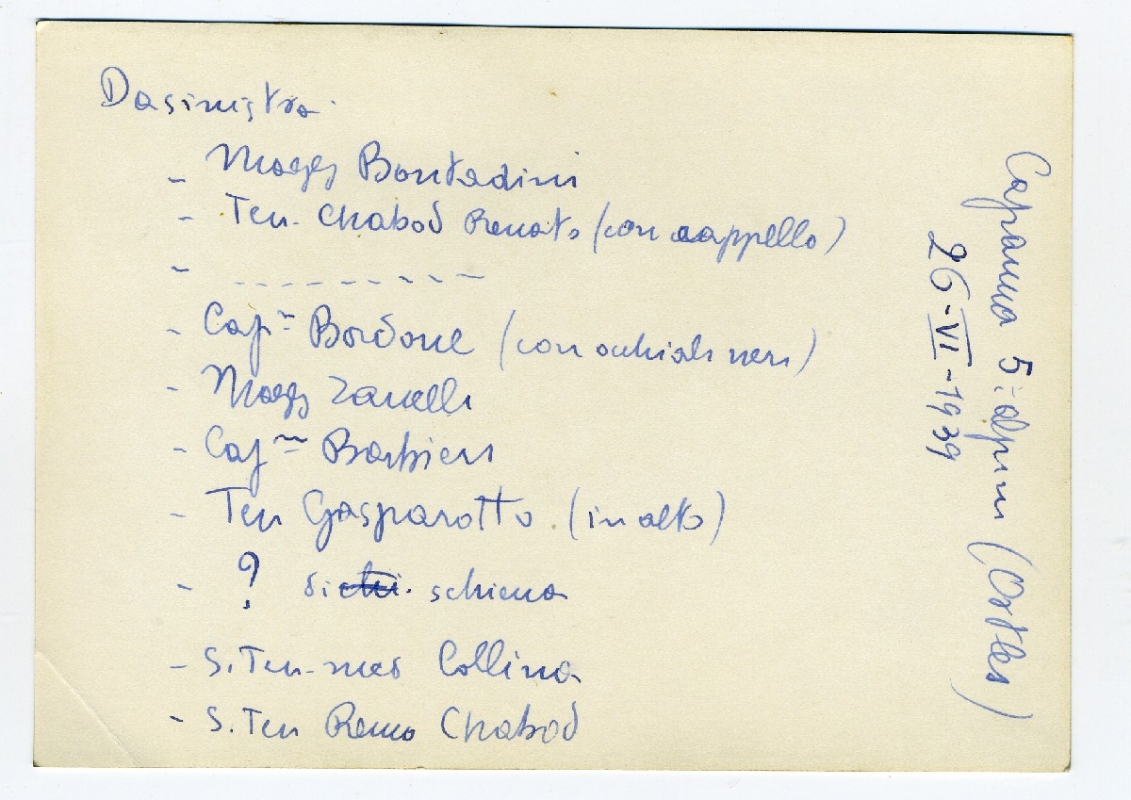 Da sinistra.
- Magg Bontadini
- Ten. Chabod Renato (con cappello)
- - - - - - - - - -
- Cap.no Bordone (con occhiali neri)
- Magg Zanelli
- Cap.no Barbieri
- Ten Gasparotto. (in alto)
- ? di schiena
- S.Ten-med Collina
- S.Ten Remo Chabod
Capanna 5° alpini (Ortles)
26-VII-1939